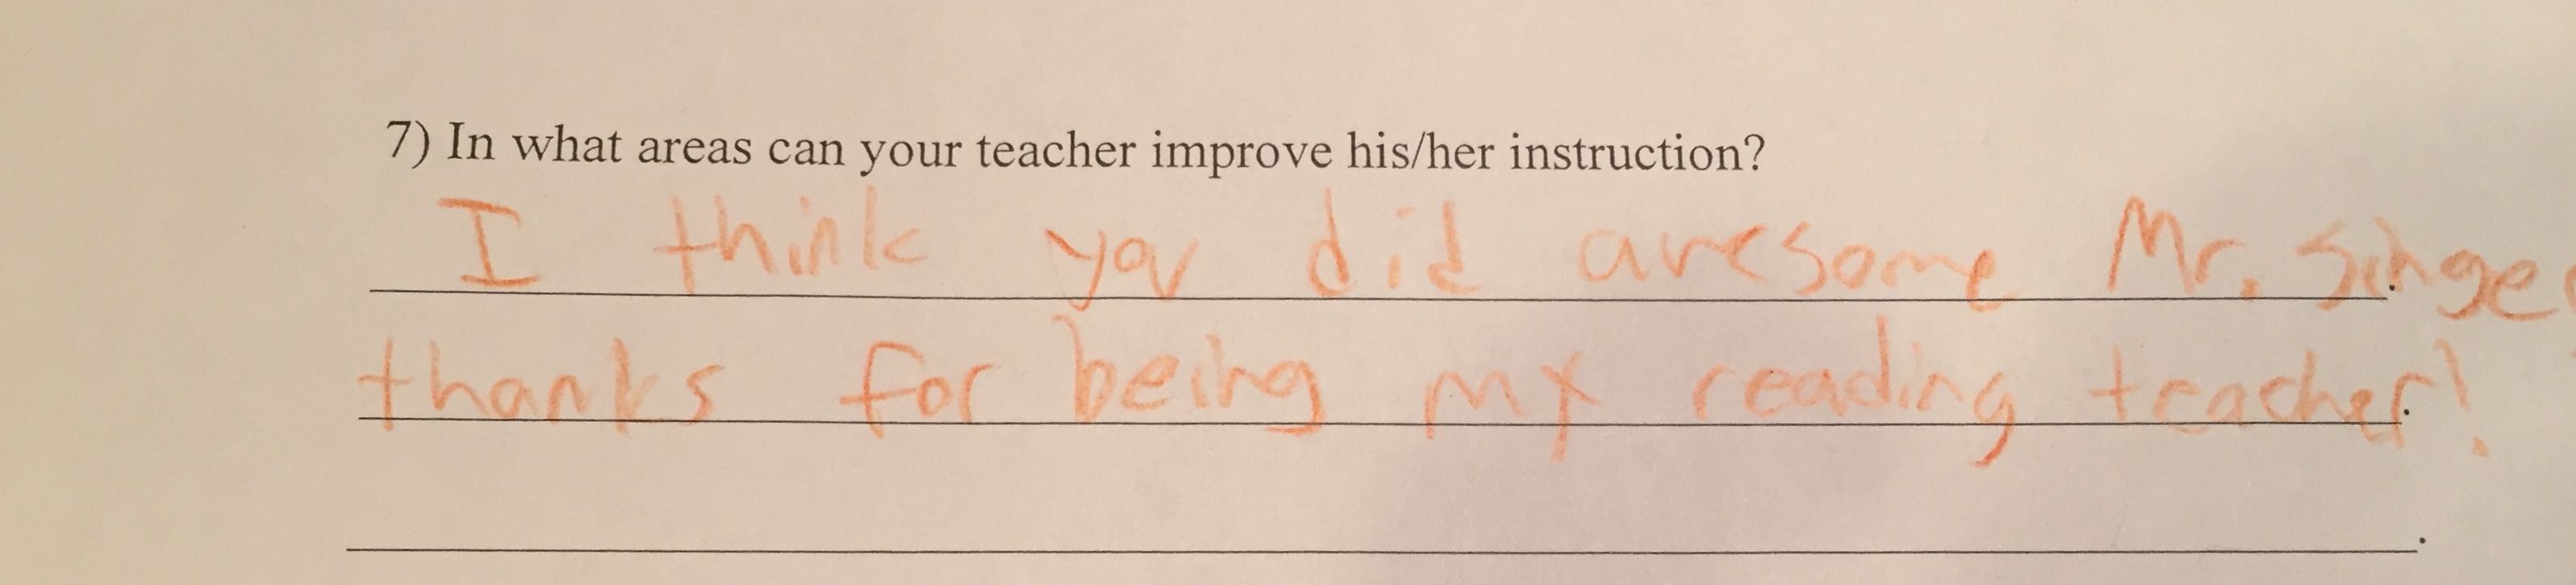 7) In what areas can your teacher improve his/her instruction?
I think you did awesome Mr. Singer
thanks for being my reading teacher!